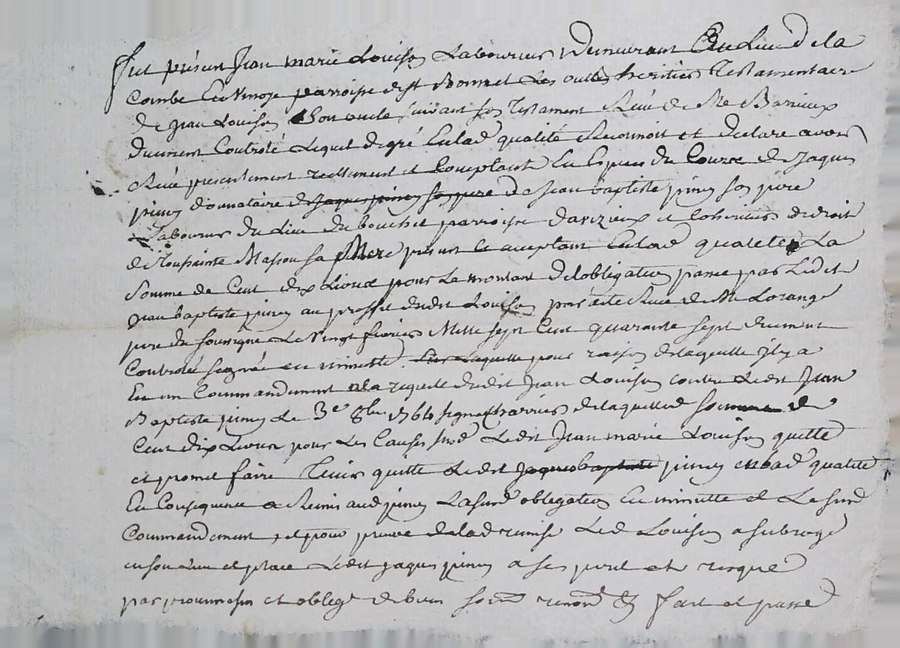 fut présent Jean marie Louison Laboureur Demeurant Au Lieu de la
Combe En Vinoje parroisse de st Bonnet Les oulles heritier Testamentaire
de Jean Louison Son oncle suivant son Testament Reçu de Me Barrieux
Duement Controlé Lequel de gré En lad qualité Reconnoit et declare avoir
Reçu presentement reellement et Comptant En Espece du Cource de Jaques
piney donnataire de Jaques piney son pere de Jean baptiste piney son pere
Laboureur du Lieu du bouchet parroisse Davizieux et Coheritier de droit
de Toussainte Masson sa Mere présent et acceptant En lad qualité La
Somme de Cent dix Livres pour Le montant de lobligation passée par Ledit
Jean baptiste piney au proffit dudit Louison pardevant Me Lorange
pere du soussigné Le Vingt fevrier Mille sept Cent quarante sept duement
Controlé signée en minutte Sur Laquelle pour raison de laquelle Il y a
Eu un Commandement a la requete dudit Jean Louison contre Ledit Jean
Baptiste piney Le 3e 8bre signé de laquelle somme de
Cent dix Livres pour Les Causes susd Ledit Jean marie Louison quitte
et promet faire Tenir quitte Ledit Jaques baptiste piney en lad qualité
En Consequence a Remis aud piney La susd obligation En minutte et Le susd
Commandement et pour preuve de lad remise Led Louison a subrogé
en son Lieu et place Ledit Jaques piney a ses peril et risque
par et oblige de bien soumd renond & fait et passé